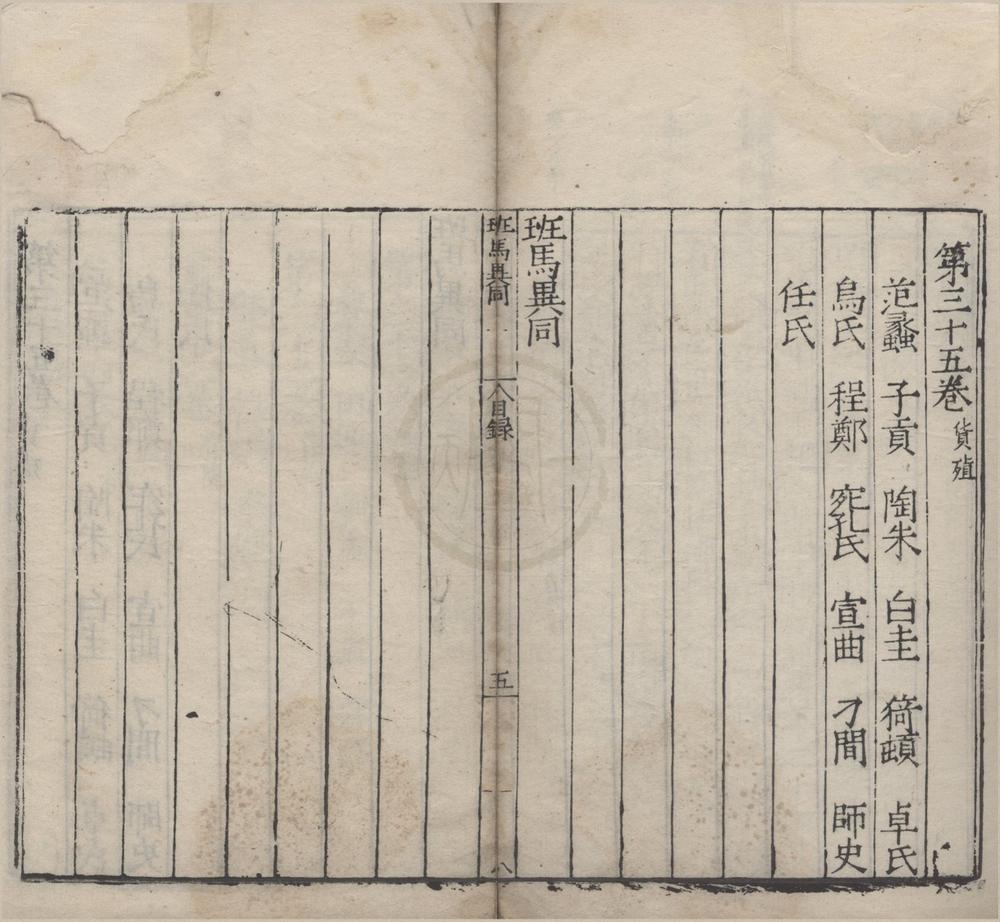 第三十五卷 貨殖
范蠡 子貢 陶朱 白圭 猗頓 卓氏
烏氏 程鄭 宛孔氏 宣曲 刁間 師史
任氏
班馬異同
班馬異同 目録 五